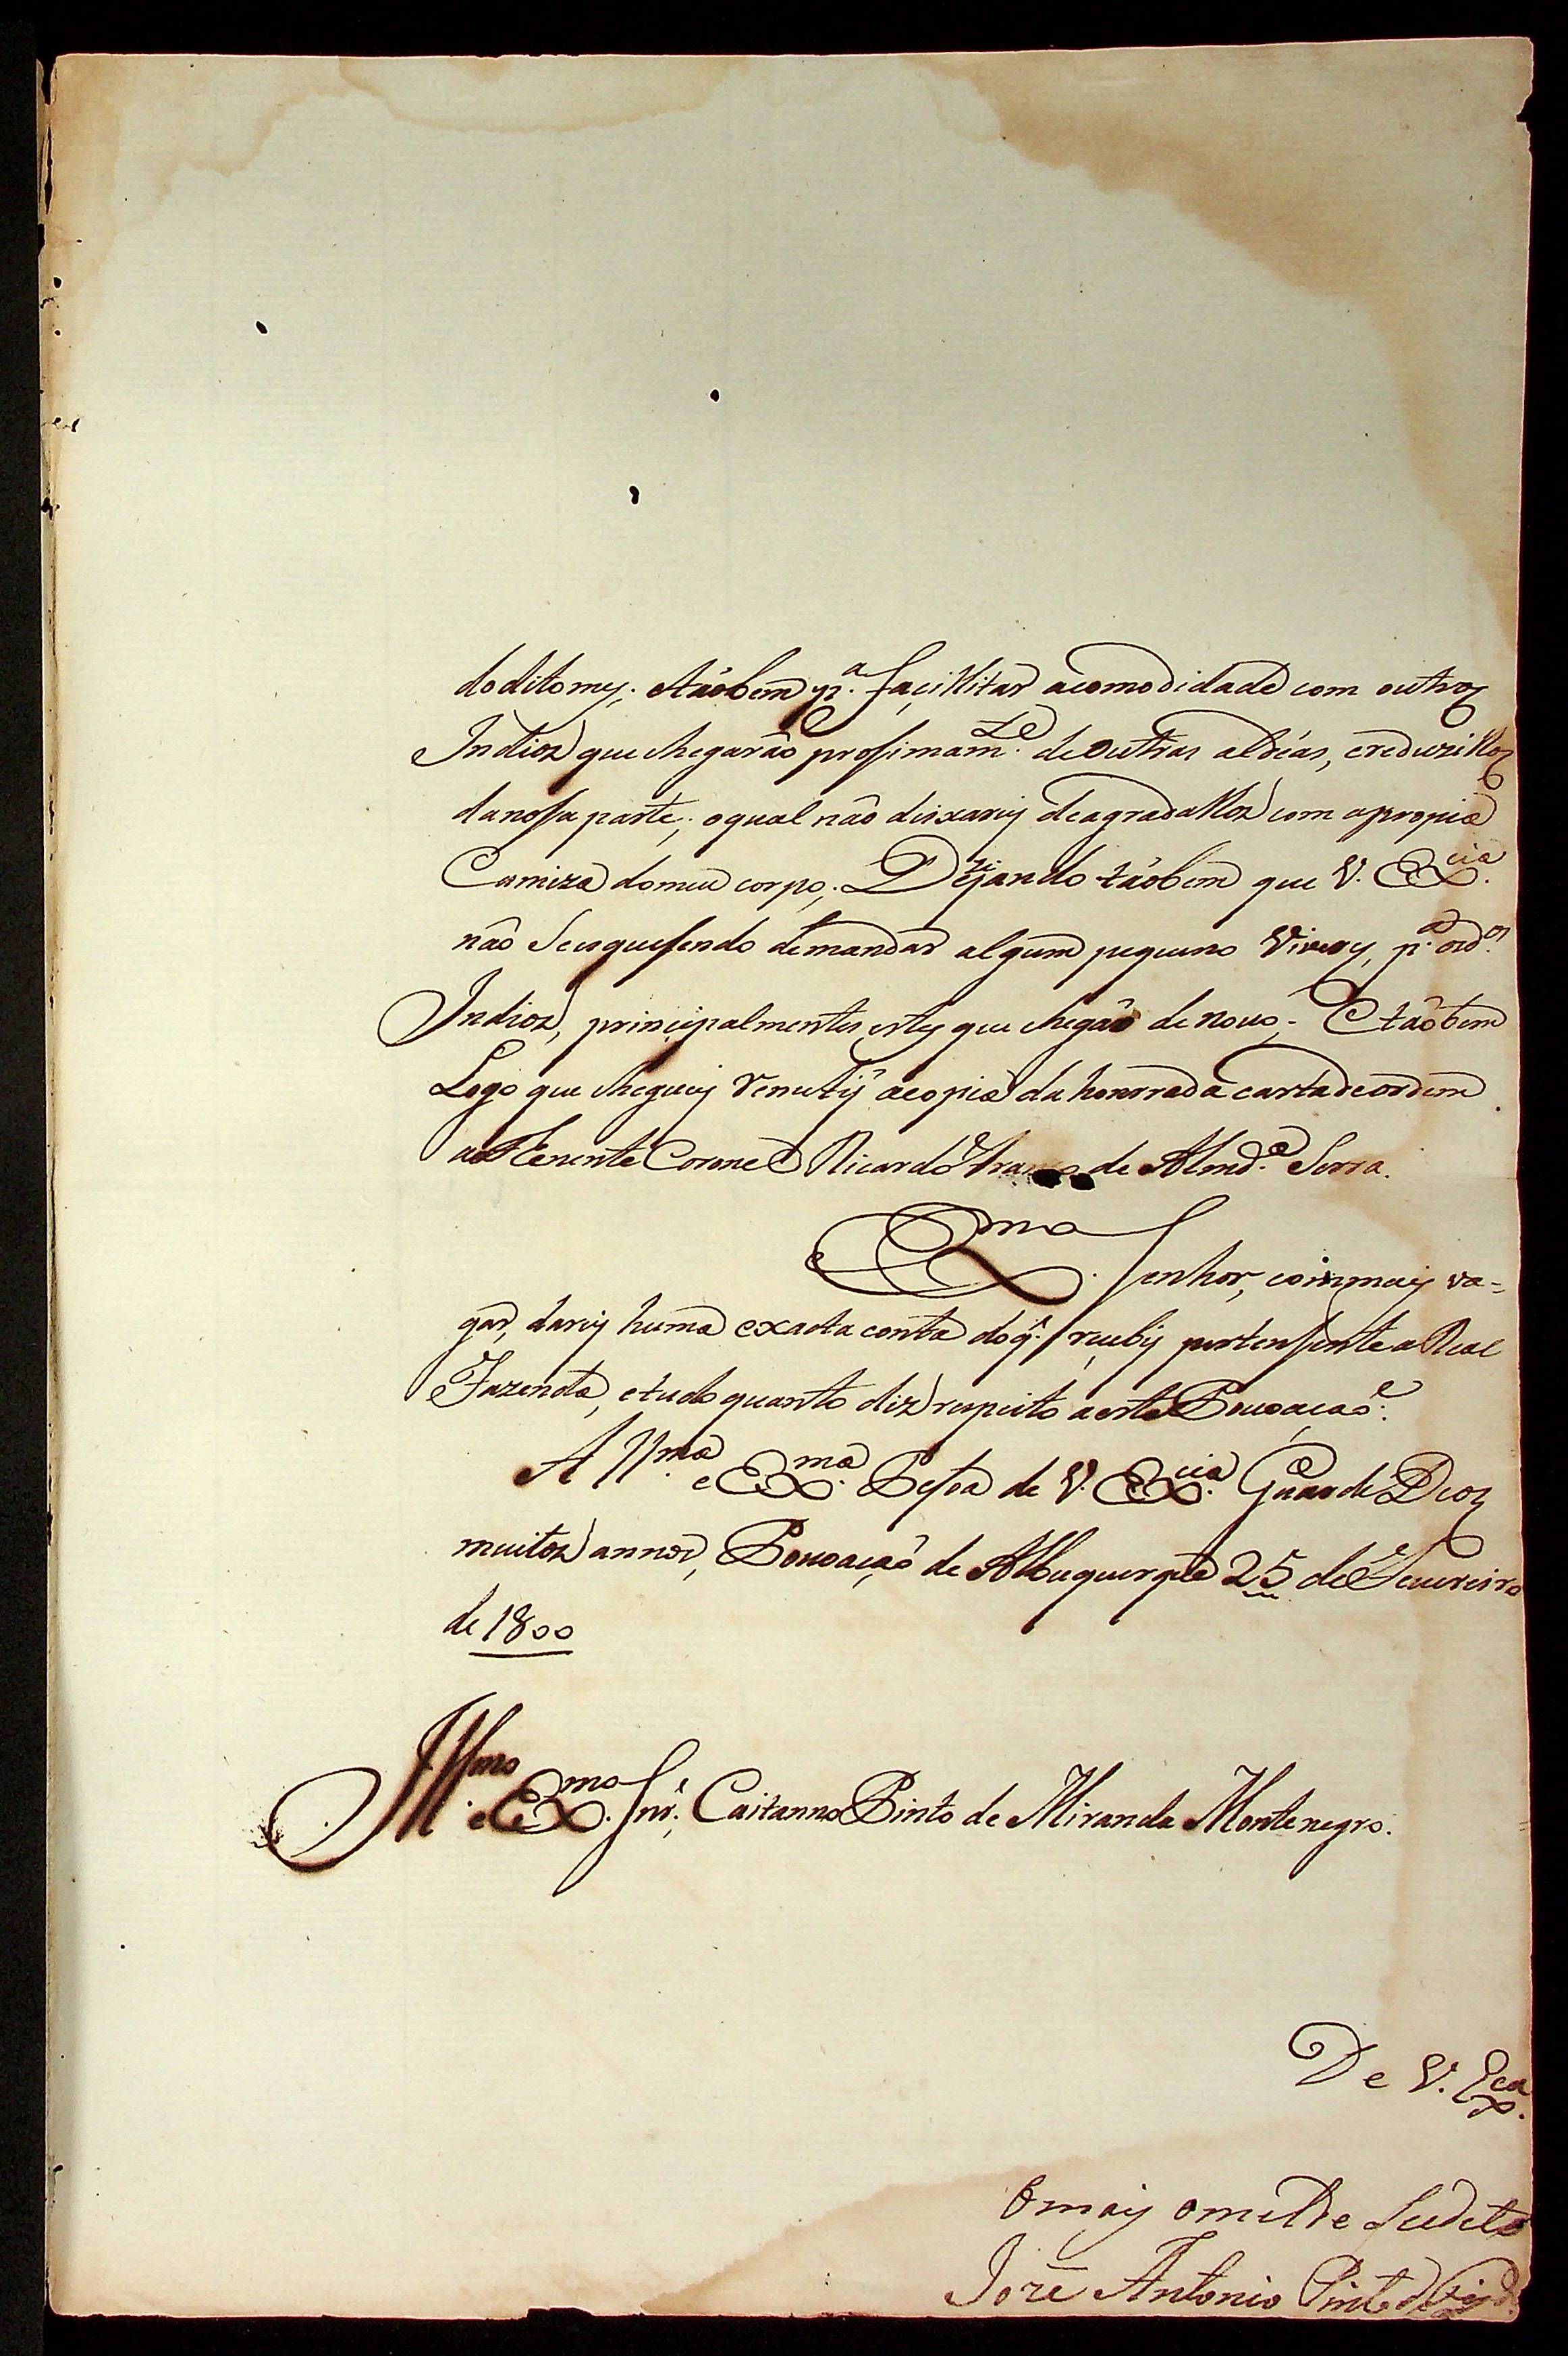 do dito mez; etãobem p.ª facillitar acomodidade com outros
Indios que chegarão prosimam.te de outras aldêas, ereduzillos
da nossa parte; oqual não deixarej de agradallos com a propia
Camiza do meu corpo; Dezejando tãobem que V. Ex.cia
não Seesquessendo de mandar algum pequeno
Indios, principalmentes estes que chegão de novo; E tãobem
Logo que cheguej Remetij acopia da honrrada carta de ordem
ao Tenente Coronel Ricardo Franco de Almd.ª Serra.
Ex.mo Senhor, com mais va=
gar, darej huma exacta conta do q.' recebij pertensente a Real
Fazenda, e tudo quanto diz respeito a esta Povoação.
A Ill.ma e Ex.ma Pesoa de V. Ex.cia Guarde Deos
muitos annos, Povoação de Albuquerque 25 de Fevereiro
de 1800
Ill.mo e Ex.mo Snr. Caitanno Pinto de Miranda Montenegro.
De V. Ex.ca
O mais omilde sudito
Joze Antonio Pinto de